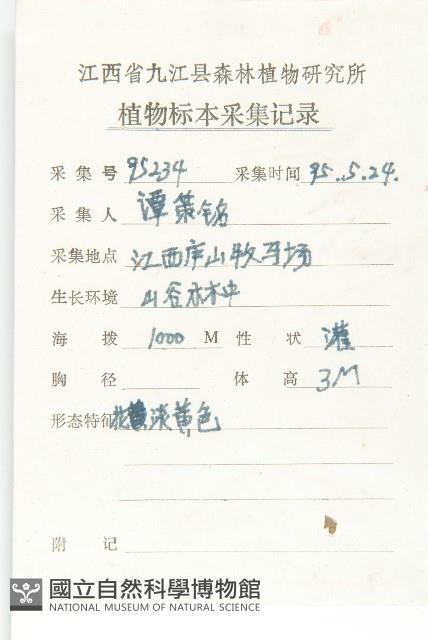 江西省九江县森林植物研究所
植物标本采集记录
采集号 95234 采集时间 95.5.24.
采集人 谭策铭
采集地点 江西庐山牧马场
生长环境 山谷林中
海拨 1000 M 性状 灌
胸径 体高 3M
形态特征 花 淡黄色
附记
國立自然科學博物館
NATIONAL MUSEUM OF NATURAL SCIENCE